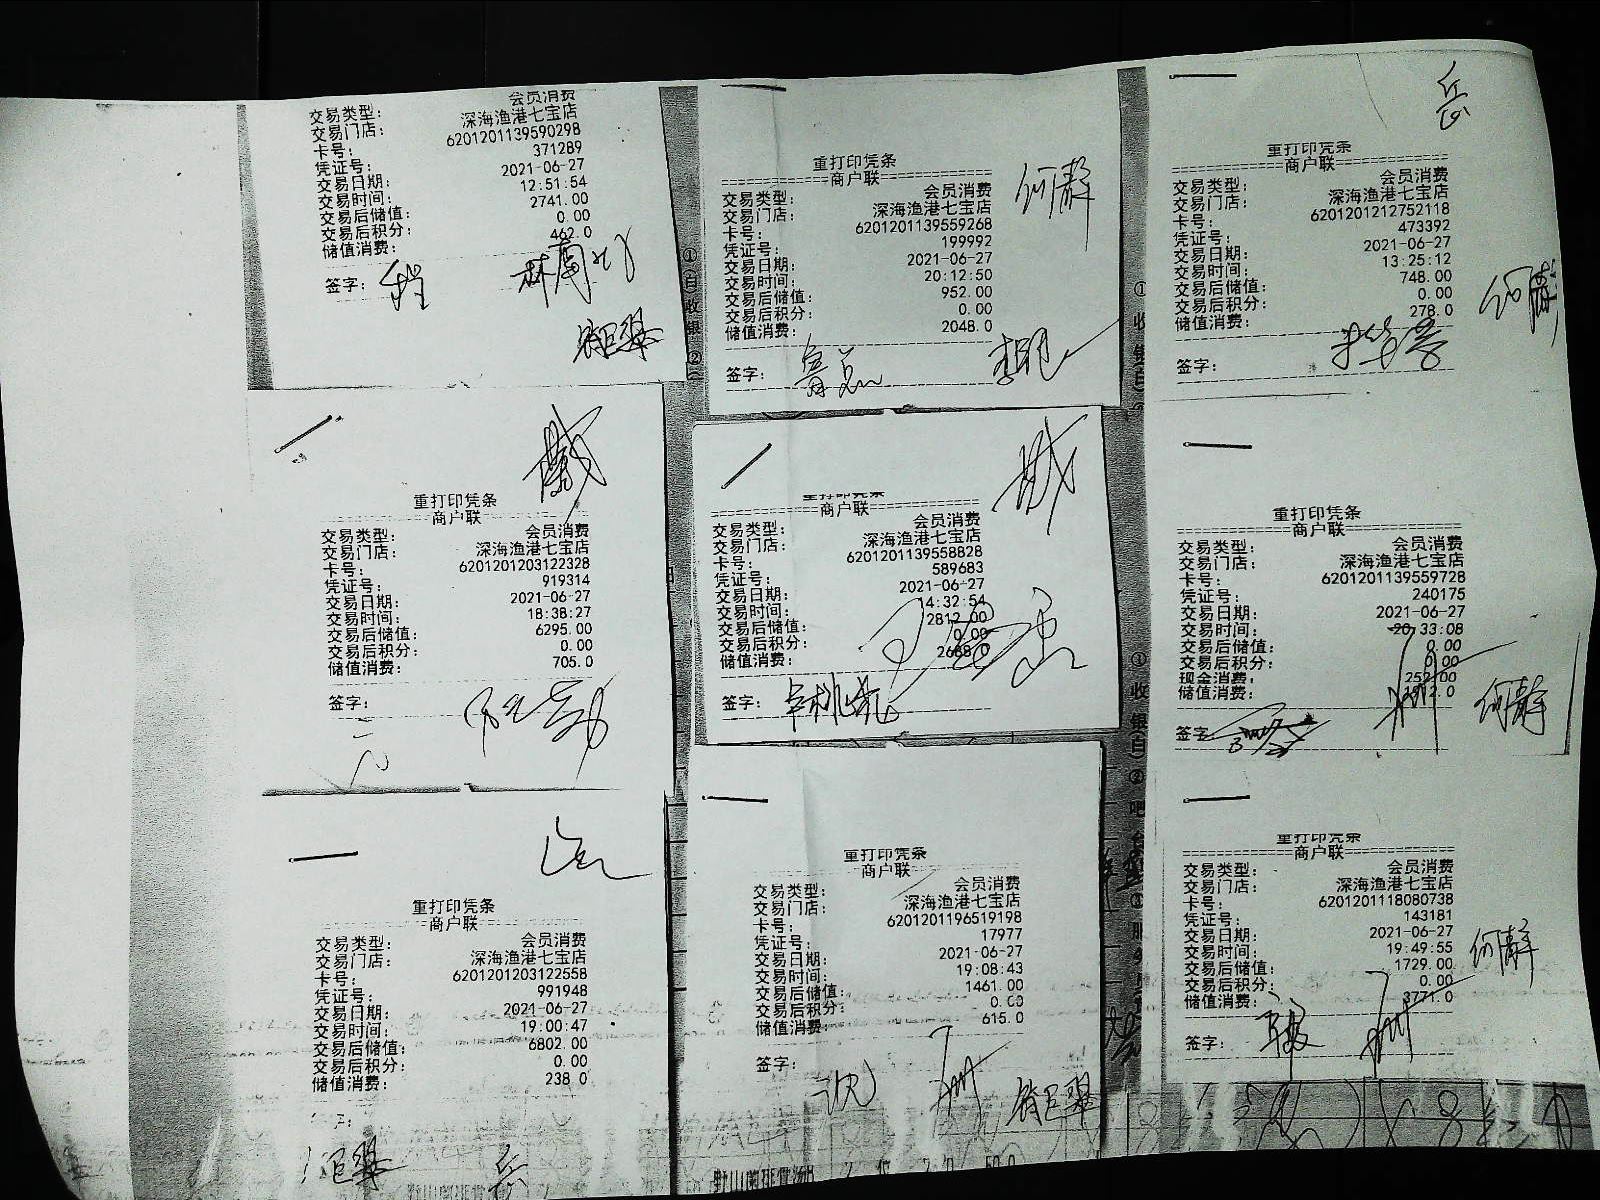 会员消费
交易类型:
深海渔港七宝店
交易门店:
6201201139590298
卡号:
371289
凭证号:
2021-06-27
交易日期:
12:51:54
交易时间:
2741.00
交易后储值:
0.00
交易后积分:
462.0
储值消费:
签字:
重打印凭条
商户联
交易类型: 会员消费
交易门店: 深海渔港七宝店
卡号: 6201201139559268
凭证号: 199992
交易日期: 2021-06-27
交易时间: 20:12:50
交易后储值: 952.00
交易后积分: 0.00
储值消费: 2048.0
签字:
何静
重打印凭条
商户联
交易类型: 会员消费
交易门店: 深海渔港七宝店
卡号: 6201201212752118
凭证号: 473392
交易日期: 2021-06-27
交易时间: 13:25:12
交易后储值: 748.00
交易后积分: 0.00
储值消费: 278.0
签字:
岳
何静
重打印凭条
商户联
交易类型: 会员消费
交易门店: 深海渔港七宝店
卡号: 6201201203122328
凭证号: 919314
交易日期: 2021-06-27
交易时间: 18:38:27
交易后储值: 6295.00
交易后积分: 0.00
储值消费: 705.0
签字:
重打印凭条
商户联
交易类型: 会员消费
交易门店: 深海渔港七宝店
卡号: 6201201139558828
凭证号: 589683
交易日期: 2021-06-27
交易时间: 14:32:54
交易后储值: 2812.00
交易后积分: 0.00
储值消费:
签字:
重打印凭条
商户联
交易类型: 会员消费
交易门店: 深海渔港七宝店
卡号: 6201201139559728
凭证号: 240175
交易日期: 2021-06-27
交易时间: 20:33:08
交易后储值: 0.00
交易后积分: 0.00
现金消费: 252.00
储值消费:
签字
何静
重打印凭条
商户联
交易类型: 会员消费
交易门店: 深海渔港七宝店
卡号: 6201201203122558
凭证号: 991948
交易日期: 2021-06-27
交易时间: 19:00:47
交易后储值: 6802.00
交易后积分: 0.00
储值消费: 238.0
岳
重打印凭条
商户联
交易类型: 会员消费
交易门店: 深海渔港七宝店
卡号: 6201201196519198
凭证号: 17977
交易日期: 2021-06-27
交易时间: 19:08:43
交易后储值: 1461.00
交易后积分: 0.00
储值消费: 615.0
签字:
重打印凭条
商户联
交易类型: 会员消费
交易门店: 深海渔港七宝店
卡号: 6201201118080738
凭证号: 143181
交易日期: 2021-06-27
交易时间: 19:49:55
交易后储值: 1729.00
交易后积分: 0.00
储值消费: 3771.0
签字:
何静